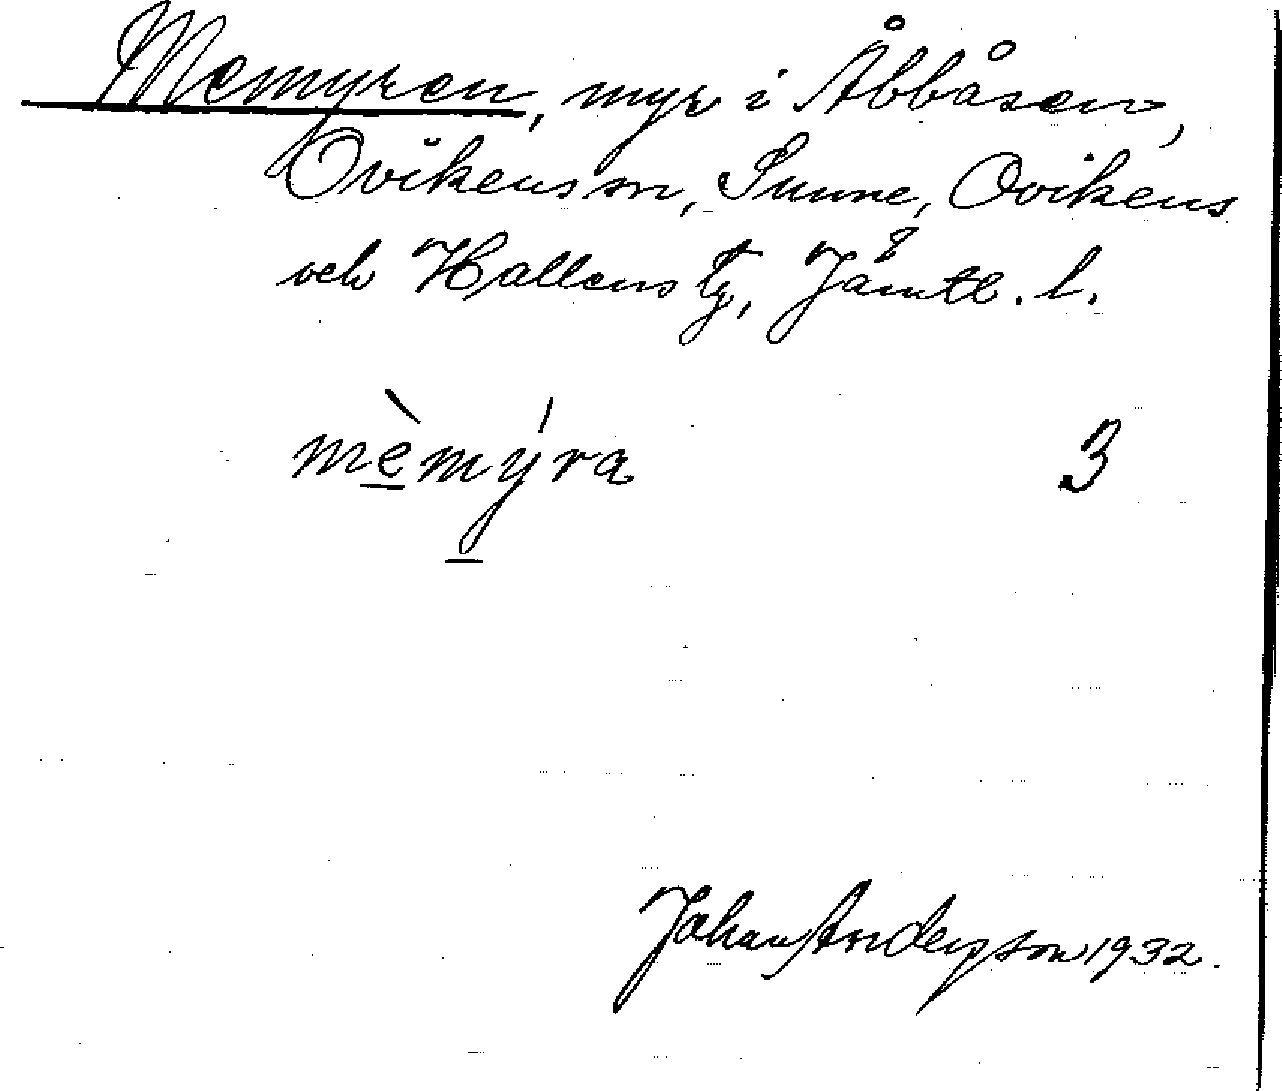 Memyren, myr i Åbbåsen,
Ovikens sn, Sunne, Ovikens
och Hallens tg, Jämtl. l.
mèmýra 3
Johan Anderson 1932.